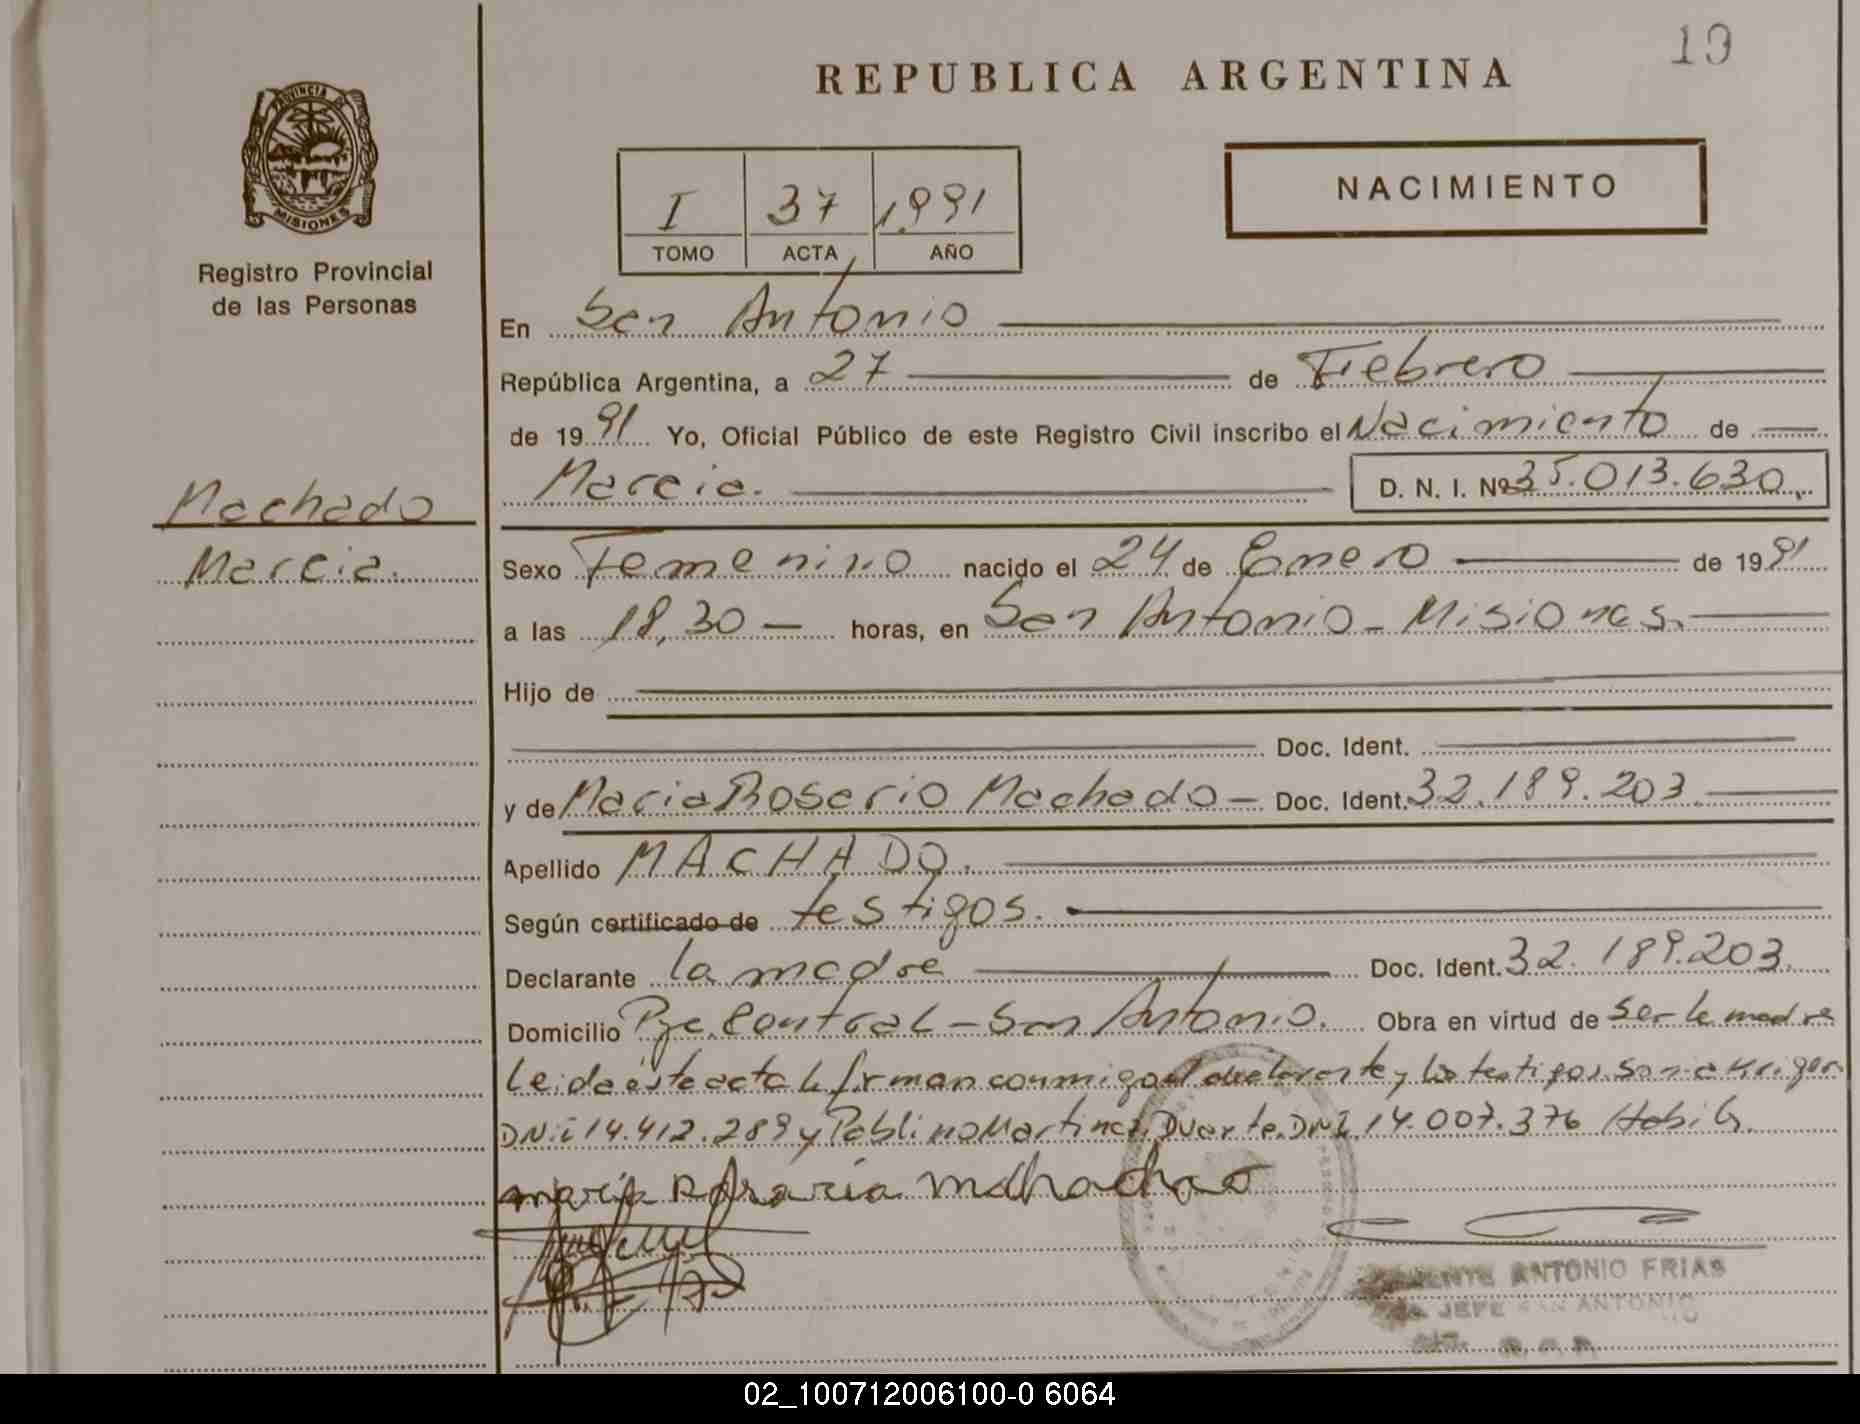 19
REPUBLICA ARGENTINA
PROVINCIA DE
MISIONES
Registro Provincial
de las Personas
I 37 1991
TOMO ACTA AÑO
NACIMIENTO
En San Antonio
República Argentina, a 27 de Febrero
de 1991 Yo, Oficial Público de este Registro Civil inscribo el Nacimiento de
Marcia. D. N. I. Nº 35.013.630
Machado
Marcia.
Sexo Femenino nacido el 24 de Enero de 1991
a las 18,30 horas, en San Antonio - Misiones.
Hijo de
Doc. Ident.
y de Maria Rosario Machado Doc. Ident. 32.189.203
Apellido MACHADO.
Según certificado de testigos.
Declarante la madre Doc. Ident. 32.189.203.
Domicilio Pje. Central - San Antonio. Obra en virtud de ser la madre
Leida ésta acta la firman conmigo el declarante y los testigos Sonia
DNi 14.412.289 y Pablino Martinez Duarte. DNI 14.007.376 Habil
maria Rosaria
ANTONIO FRIAS
JEFE SAN ANTONIO
02_100712006100-0 6064